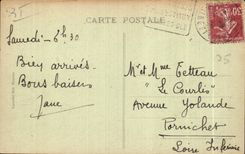 CARTE POSTALE
Samedi - 6h30
Bien arrivés -
Bons baisers
Jane
Mr et Mme Tetteau
"Le Courlis"
Avenue Yolande
Pornichet
Loire Inférieure